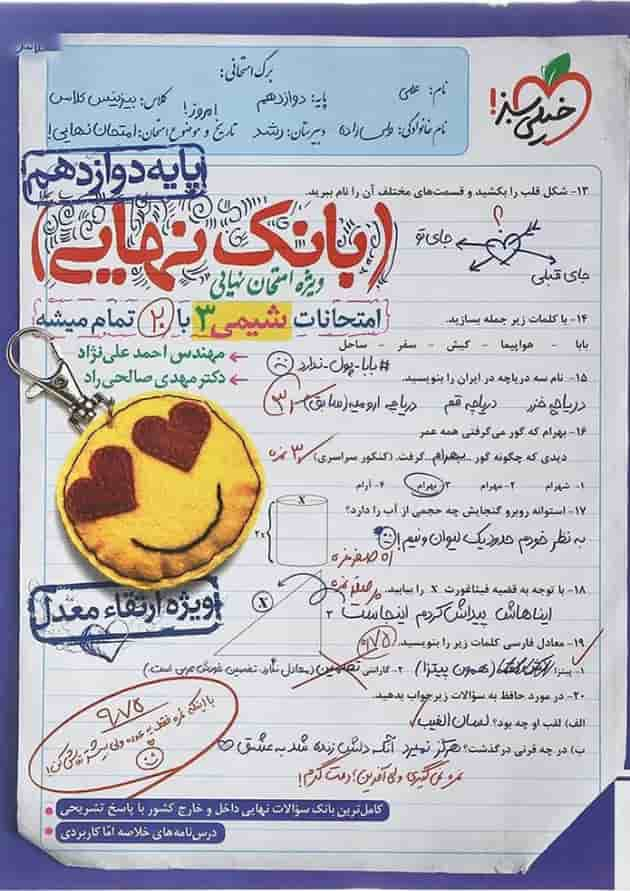 خیلی سبز!
برگ امتحانی:
نام: علی
پایه: دوازدهم
کلاس: بیزینس کلاس
امروز!
نام خانوادگی: ولی‌زاده
دبیرستان: رشد
تاریخ و موضوع امتحان: امتحان نهایی!
پایه دوازدهم
(بانک نهایی)
ویژه امتحان نهایی
امتحانات شیمی ۳ با ۲۰ تمام میشه
مهندس احمد علی‌نژاد
دکتر مهدی صالحی‌راد
۱۳- شکل قلب را بکشید و قسمت‌های مختلف آن را نام ببرید.
؟
جای تو
جای قبلی
۱۴- با کلمات زیر جمله بسازید.
بابا - هواپیما - کیش - سفر - ساحل
#بابا_پول_ندارد
۱۵- نام سه دریاچه در ایران را بنویسید.
دریاچه خزر دریاچه قم دریاچه ارومیه (سابق)
۱۶- بهرام که گور می‌گرفتی همه عمر
دیدی که چگونه گور ...بهرام... گرفت. (کنکور سراسری)
۳ نمره
۱- شهرام ۲- مهرام ۳- بهرام ۴- آرام
۱۷- استوانه روبرو گنجایش چه حجمی از آب را دارد؟
به نظر خودم حدود یک لیوان و نیم!
x
۲x
۱۸- با توجه به قضیه فیثاغورث x را بیابید.
ایناهاش پیداش کردم اینجاست
x
۲
۲
۱۹- معادل فارسی کلمات زیر را بنویسید.
۹٫۷۵
۱- پیتزا (همون پیتزا) ۲- گارانتی تضمین
۲۰- در مورد حافظ به سؤالات زیر جواب بدهید.
الف) لقب او چه بود؟ لسان الغیب
ب) در چه قرنی درگذشت؟ هرگز نمیرد آنکه دلش زنده شد به عشق
نمره نمی‌گیری ولی آفرین! دمت گرم!
۹٫۷۵
ویژه ارتقاء معدل
کامل‌ترین بانک سؤالات نهایی داخل و خارج کشور با پاسخ تشریحی
درس‌نامه‌های خلاصه اما کاربردی